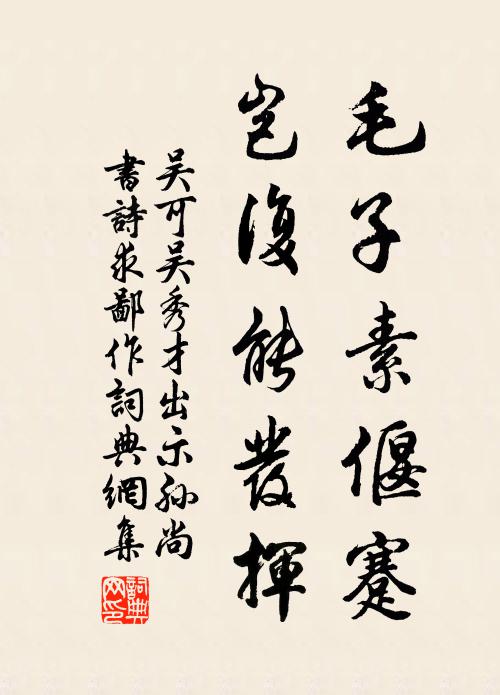 毛子素偃蹇
豈復能發揮
吳可吳秀才出示孫尚
書詩求鄙作詞典網集
詞典網印